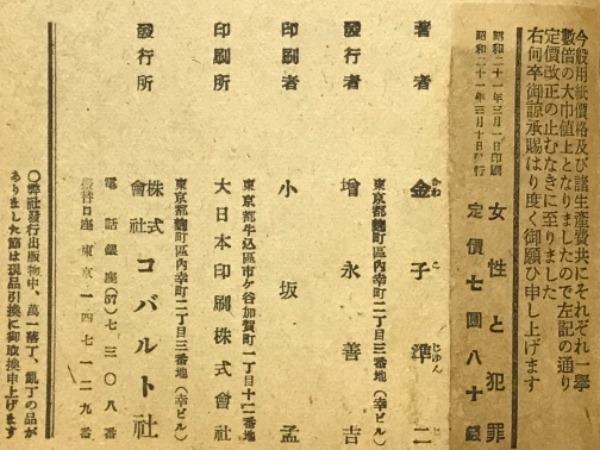 今般用紙價格及び諸生產費共にそれぞれ一擧
數倍の大巾値上となりましたので左記の通り
定價改正の止むなきに至りました
右何卒御諒承賜はり度く御願ひ申し上げます
昭和二十一年三月一日印刷
昭和二十一年三月十日發行
女性と犯罪
定價七圓八十錢
著者 金子準二
かねこじゅん
東京都麴町區內幸町二丁目三番地(幸ビル)
發行者 增永善吉
印刷者 小坂孟
東京都牛込區市ケ谷加賀町一丁目十二番地
印刷所 大日本印刷株式會社
東京都麴町區內幸町二丁目三番地(幸ビル)
發行所 株式會社 コバルト社
電話銀座(57)七三〇八番
振替口座東京一四七一二九番
〇弊社發行出版物中、萬一落丁、亂丁の品が
ありました節は現品引換に御取換申上げます